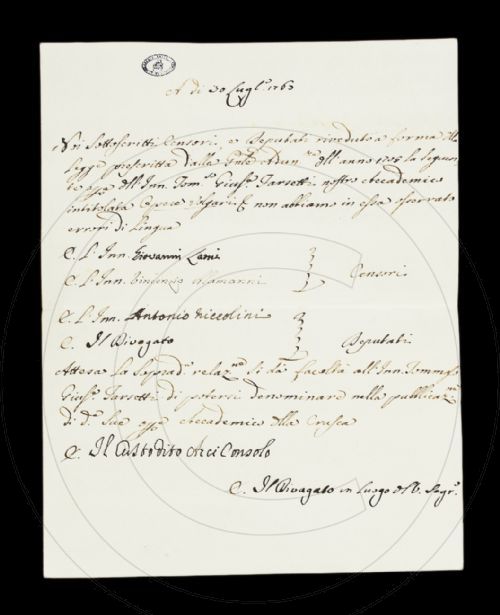 A di 30 Lugl.º 1763
Noi Sottoscritti Censori, e Deputati riveduto a forma
Legge prescritta dalla dell' anno la seguen
dell' Inn. Tom.º Gius.e Farsetti nostro Accademico
intitolata non abbiamo in essa osservato
errori di Lingua
C. L'Inn. Giovanni Lami
C. L'Inn. Vincenzio Alamanni
Censori
C. L'Inn. Antonio Niccolini
C. Il Divagato
Deputati
Attesa la soprad.a relaz.ne si dà facoltà all' Inn. Tommaso
Gius.e Farsetti di potersi denominare nella pubblicaz.ne
di d.e sue Accademico della Crusca
C. Il Custodito Arciconsolo
C. Il Divagato in luogo del Segr.º